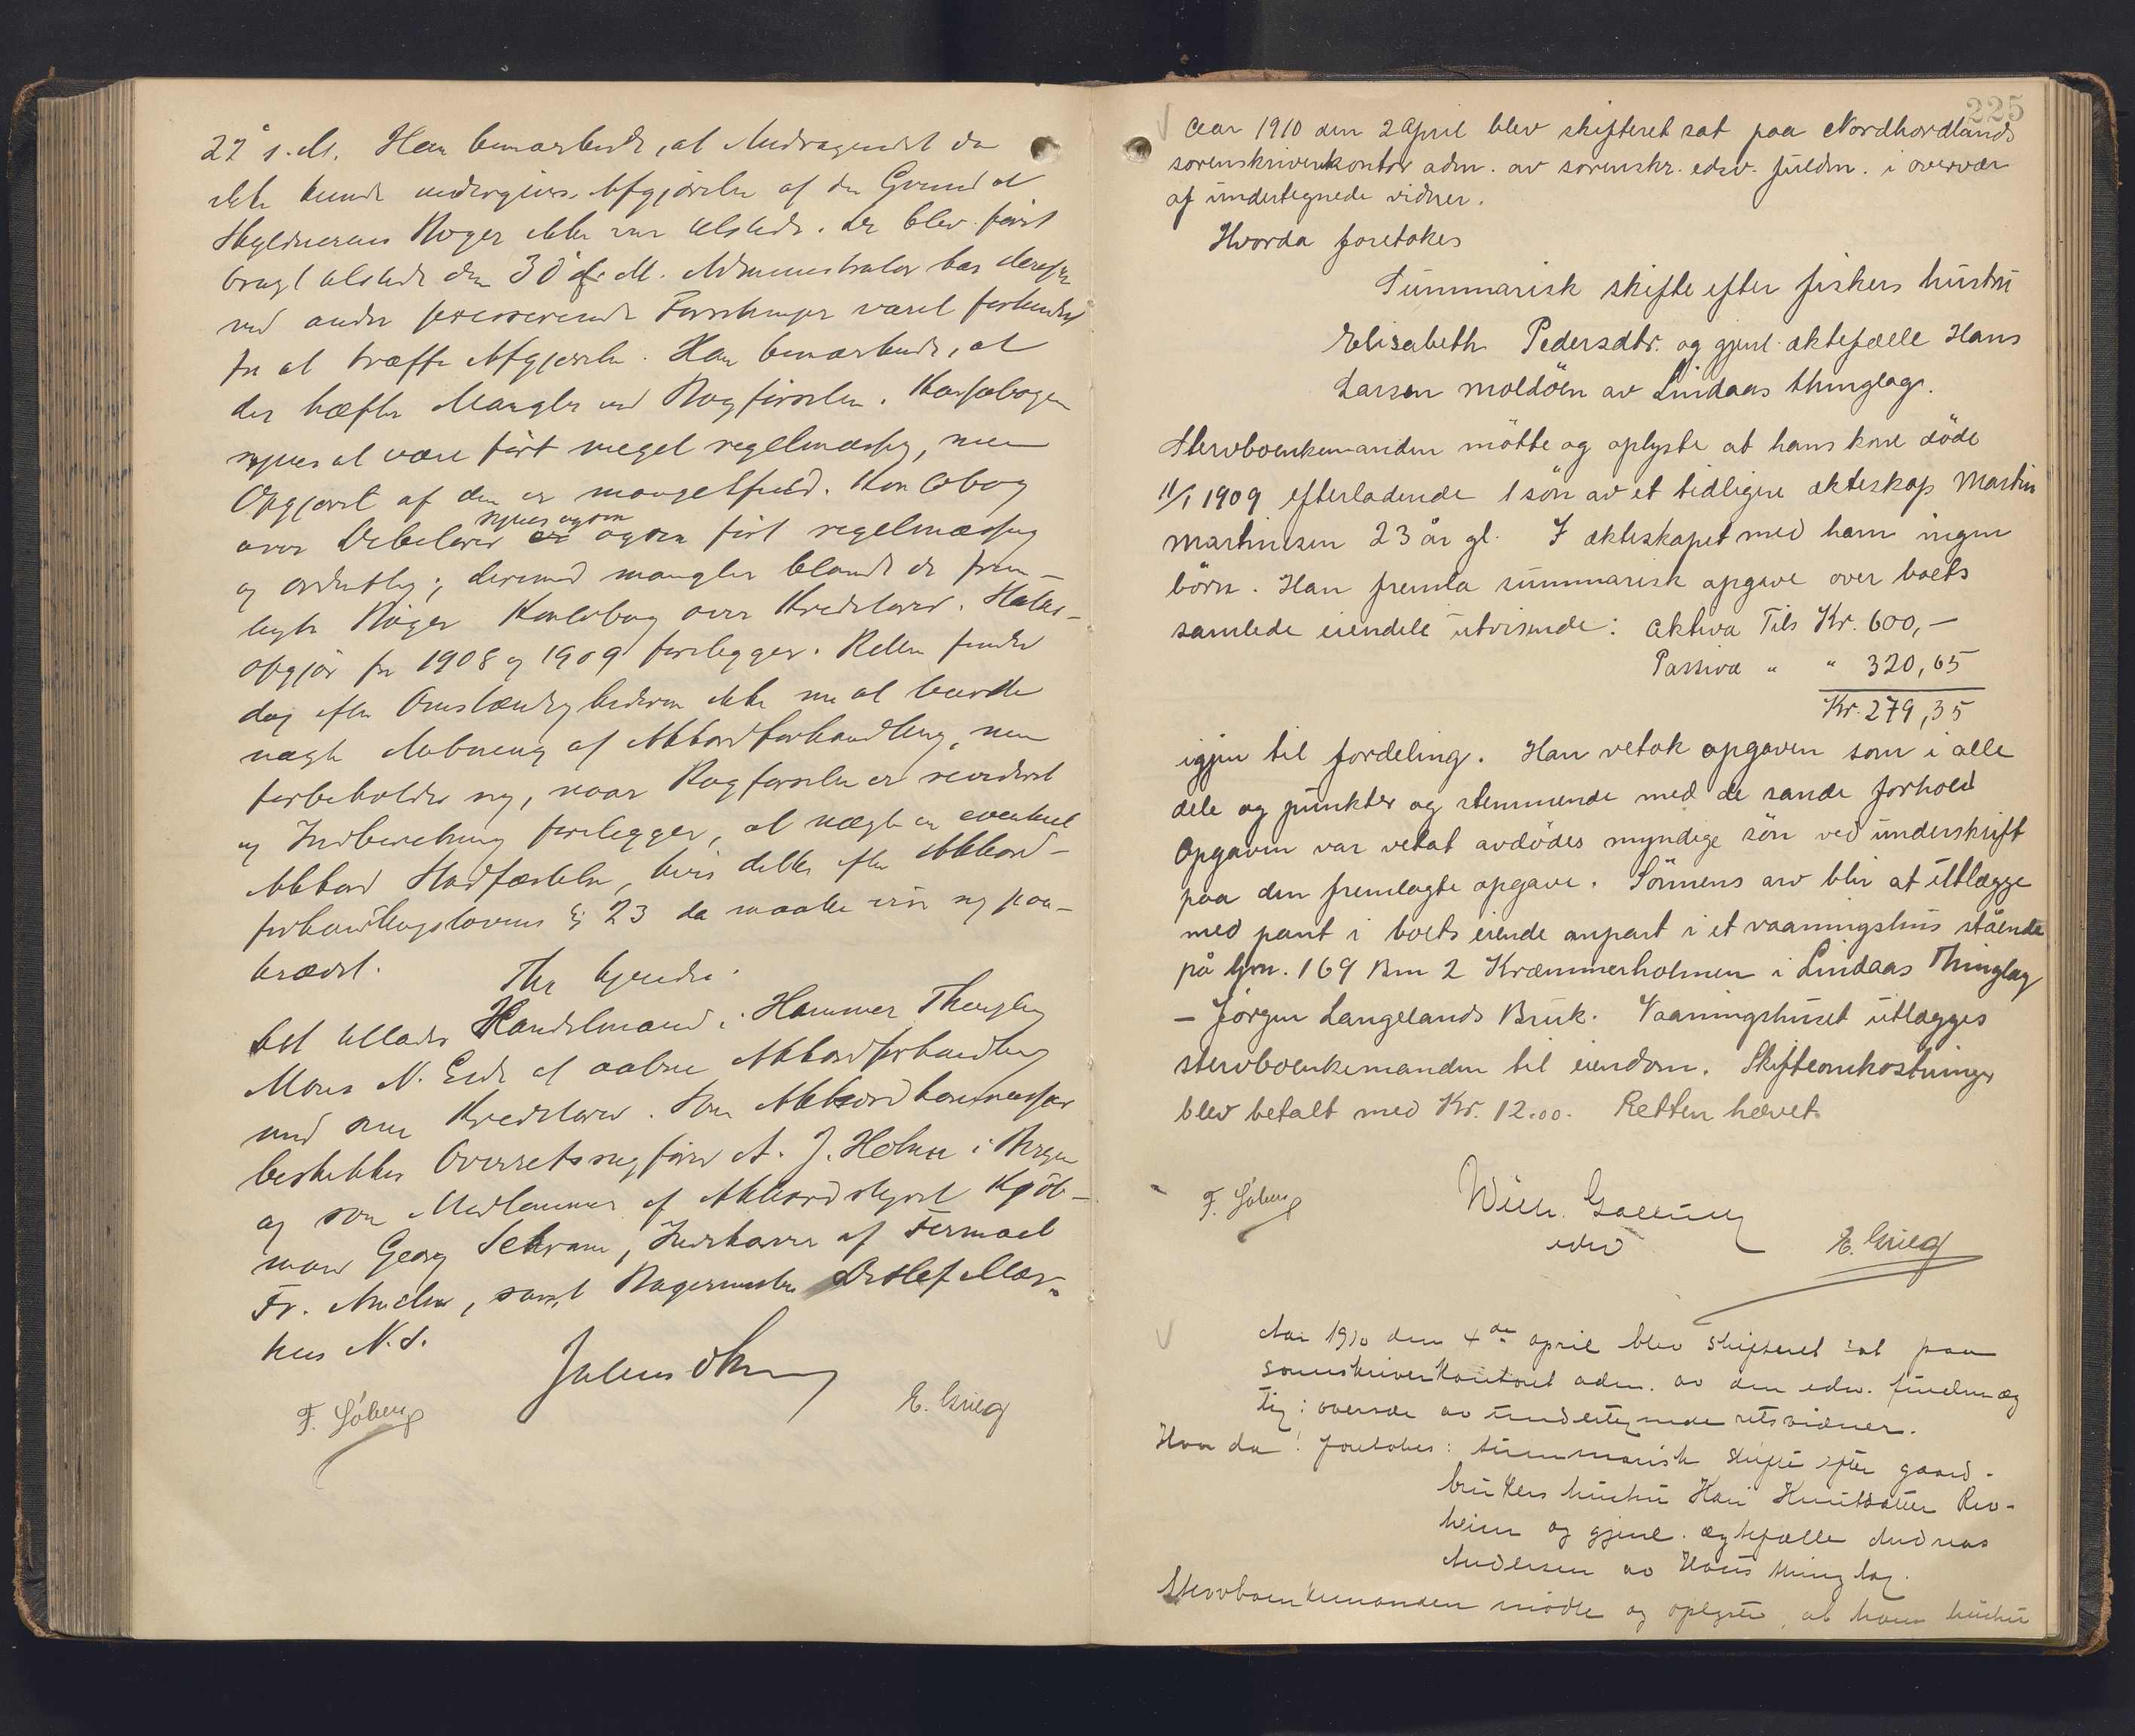 22' s. M. Han bemærkede, at Andragendet da
ikke kunde undergives Afgjørelse af den Grund at
Skyldnerens Bøger ikke var tilstede. De blev først
bragt tilstede den 30' f. M. Administrator har derefter
ved andre presserende Forretninger været forhindret
fra at træffe Afgjørelse. Han bemærkede, at
der hæfter Mangler ved Bogførselen. Kassabogen
synes at være ført meget regelmæssig, men
Opgjøret af den er mangelfuld. Kontobog
synes ogsaa
over Debitorer er ogsaa ført regelmæssig
og ordentlig; derimod mangler blandt de frem-
lagte Bøger Kontobog over Kreditorer. Status-
opgjør for 1908 og 1909 forelegger. Retten finder
dog efter Omstændighederne ikke nu at burde
nægte Aabning af Akkordforhandling, men
forbeholder sig, naar Bogførselen er revideret
og Indberetning forelegger, at nægte en eventuel
Akkord Stadfæstelse, hvis dette efter Akkord-
forhandlingslovens § 23 da maatte vise sig paa-
krævet.
Thi kjendes:
Det tillades Handelsmand i Hammer Thinglag
Mons N. Eide at aabne Akkordforhandling
med sine Kreditorer. Som Akkordkommissær
beskikkes Overretssagfører A. J. Holme i Bergen
og som Medlemmer af Akkordstyret Kjøb-
mand Georg Schram, Indehaver af Firmaet
Fr. , samt Bagermester Detlef Mar-
kus N. S.
F. Søberg
E. Grieg
225
Aar 1910 den 2 April blev skifteret sat paa Nordhordlands
sorenskriverkontor adm. av sorenskr. edsv. fuldm. i overvær
af undertegnede vidner.
Hvorda foretokes
Summarisk skifte efter fiskers hustru
Elisabeth Pedersdtr. og gjenl. æktefælle Hans
Larsen Moldöen av Lindaas thinglag.
Stervboenkemanden mötte og oplyste at hans kone döde
11/1 1909 efterladende 1 sön av et tidligere ækteskap Martin
Martinsen 23 år gl. I ækteskapet med ham ingen
börn. Han fremla summarisk opgave over boets
samlede eiendele utvisende: Aktiva Tils Kr. 600,-
Passiva " " 320,65
Kr. 279,35
igjen til fordeling. Han vetok opgaven som i alle
dele og punkter og stemmende med de sande forhold
Opgaven var vetat avdödes myndige sön ved underskrift
paa den fremlagte opgave. Sönnens arv blir at utlægge
med pant i boets eiende anpart i et vaaningshus stående
på Grn. 169 Brn 2 Kræmmerholmen i Lindaas Thinglag
- Jörgen Langelands Bruk. Vaaningshuset utlægges
stervboenkemanden til eiendom. Skifteomkostninger
blev betalt med Kr. 12.00. Retten hævet.
F. Søberg
Wilh.
edsv
E. Grieg
Aar 1910 den 4de april blev skifteret sat paa
sorenskriverkontoret adm. av den edsv. fuldmæg
tig i overvær av undertegnede retsvidner.
Hvor da foretokes: summarisk skifte efter gaard-
brukers hustru Kari Knutsdatter Rev-
heim og gjenl. ægtefælle Andreas
Andersen av Haus thinglag.
Stervboenkemanden mödte og oplyste, at hans hustru